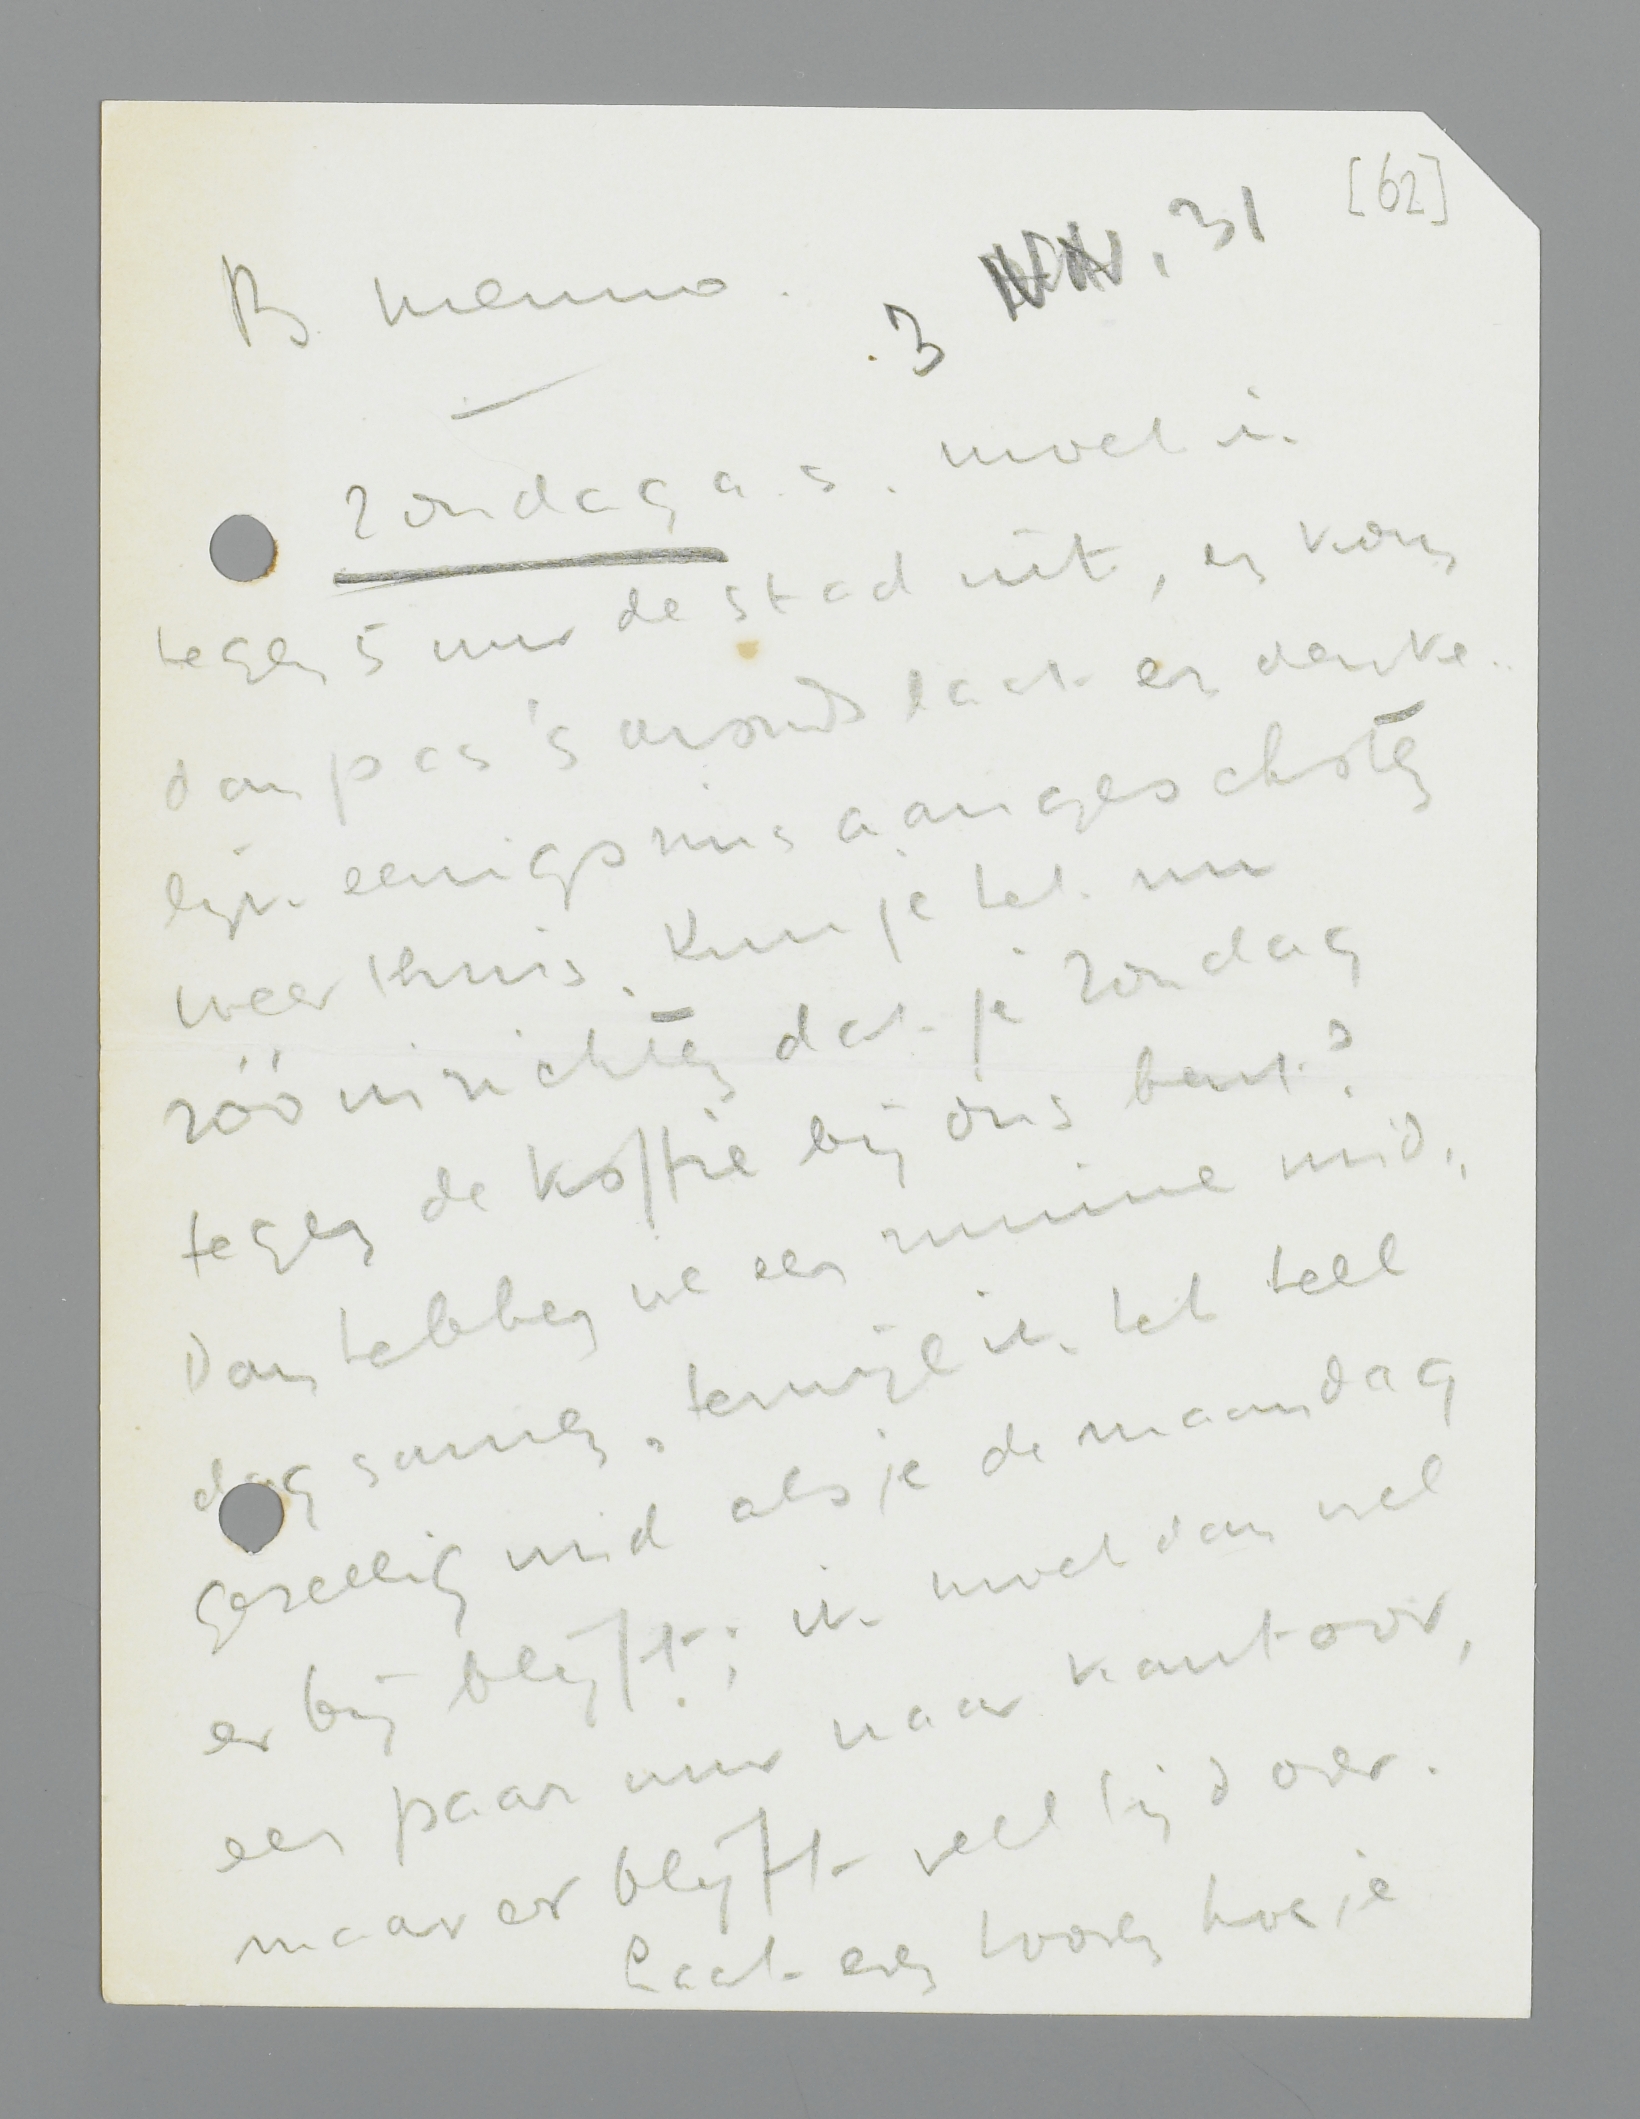 [62]
3 Nov. 31
B. Menno.
Zondag a.s. moet ik
tegen 5 uur de stad uit, en kom
dan pas 's avonds laat en denke-
lijk eenigszins aangeschoten
weer thuis. Kun je het nu
zóó inrichten dat je zondag
tegen de koffie bij ons bent?
Dan hebben we een ruime mid-
dag samen, terwijl ik het heel
gezellig vind als je de maandag
er bij blijft; ik moet dan wel
een paar uur naar kantoor,
maar er blijft veel tijd over.
Laat even hooren hoe je